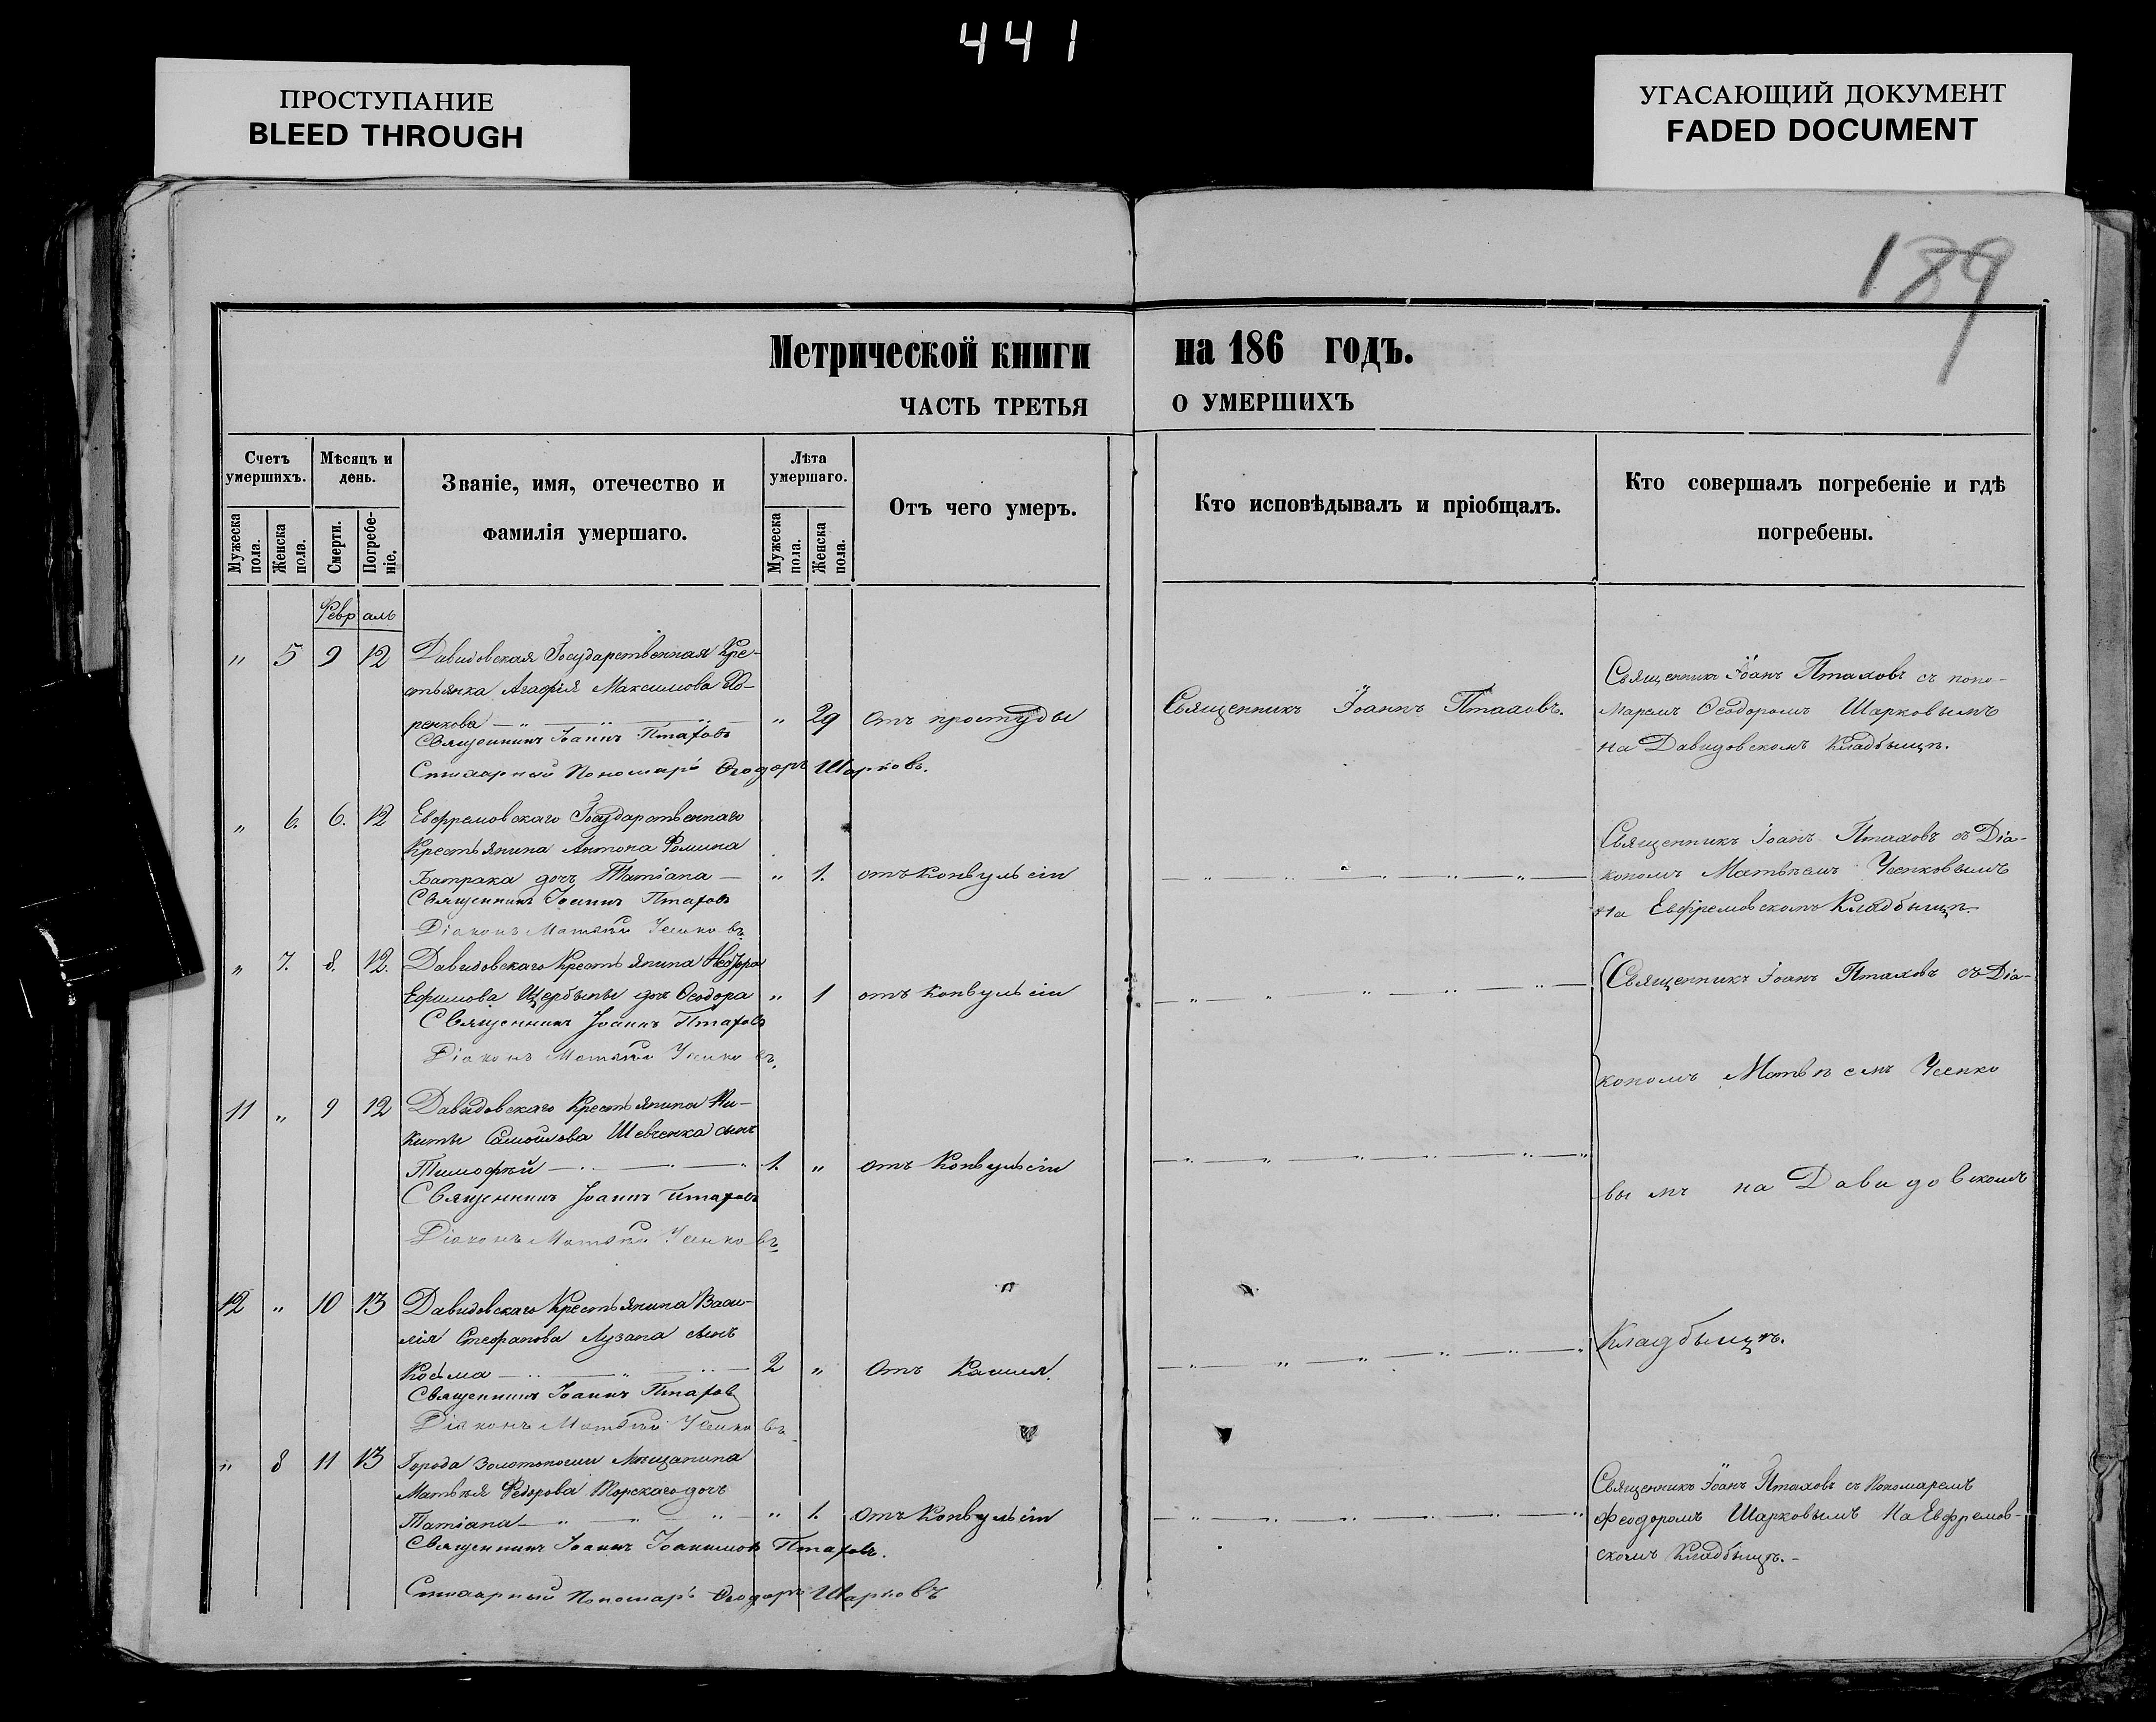 441
ПРОСТУПАНИЕ
BLEED THROUGH
УГАСАЮЩИЙ ДОКУМЕНТ
FADED DOCUMENT
189
Метрической книги на 186 годъ.
ЧАСТЬ ТРЕТЬЯ О УМЕРШИХЪ
Счетъ умершихъ.
Мужеска пола.
Женска пола.
Мѣсяцъ и день.
Смерти.
Погребеніе.
Званіе, имя, отечество и
фамилія умершаго.
Лѣта умершаго.
Мужеска пола.
Женска пола.
Отъ чего умеръ.
Кто исповѣдывалъ и пріобщалъ.
Кто совершалъ погребеніе и гдѣ
погребены.
Февраль
" 5 9 12 Давидовская Государственная Кре-
стьянка Агафія Максимова
ренкова " 29 отъ простуды
Священникъ Іоаннъ Птаховъ.
Священникъ Іоанъ Птаховъ съ поно-
маремъ Ѳеодоромъ Шарковымъ
на Давидовскомъ Кладбищѣ.
Священникъ Іоаннъ Птаховъ
Пономарь Ѳеодоръ Шарковъ.
" 6. 6. 12 Евфремовскаго Государственнаго
Крестьянина Антона Фомина
Батрака дочь Татіана " 1. отъ Конвульсіи
Священникъ Іоанъ Птаховъ съ Діа-
кономъ Матвѣемъ Усенковымъ
на Евфремовскомъ Кладбищѣ.
Священникъ Іоаннъ Птаховъ
Діаконъ Матвѣй Усенковъ
" 7. 8. 12. Давидовскаго Крестьянина
Ефимова Щербины дочь Ѳеодора " 1 отъ Конвульсіи
Священникъ Іоанъ Птаховъ съ Діа-
Священникъ Іоаннъ Птаховъ
Діаконъ Матвѣй Усенковъ.
кономъ Матвѣемъ Усенко
11 " 9 12 Давидовскаго Крестьянина Ни-
киты Самойлова Шевченка сынъ
Тимофѣй 1. " отъ Конвульсіи
Священникъ Іоаннъ Птаховъ
Діаконъ Матвѣй Усенковъ
вымъ на Давидовскомъ
12 " 10 13 Давидовскаго Крестьянина Васи-
лія Стефанова Лузана сынъ
Косьма 2 " Отъ Кашля.
Кладбищѣ.
Священникъ Іоаннъ Птаховъ
Діаконъ Матвѣй Усенковъ
" 8 11 13 Города Золотоноши Мѣщанина
Матвѣя Федорова дочь
Татіана " 1. Отъ Конвульсіи
Священникъ Іоанъ Птаховъ съ Пономаремъ
Феодоромъ Шарковымъ На Евфремов-
скомъ Кладбищѣ.
Священникъ Іоаннъ Іоакимовъ Птаховъ.
Пономарь Ѳеодоръ Шарковъ